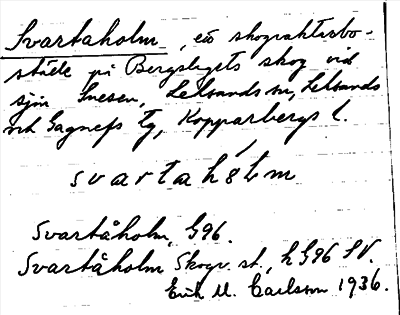 Svartaholm, en skogvaktarbo-
ställe på Bergslagets skog vid
sjön Snesen, Leksands sn, Leksands
och Gagnefs tg, Kopparbergs l.
svartahólm
Svartåholm, G96.
Svartåholm Skogv. st., h G96 SV.
Erik M. Carlsson 1936.